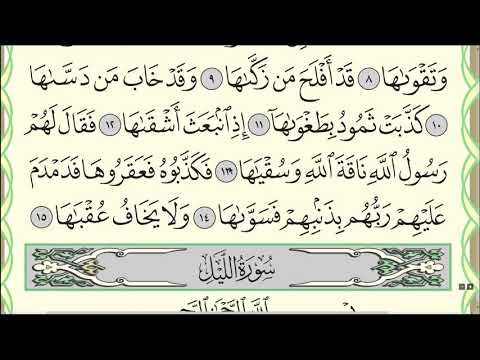 وَتَقْوَىٰهَا ٨ قَدْ أَفْلَحَ مَن زَكَّىٰهَا ٩ وَقَدْ خَابَ مَن دَسَّىٰهَا
١٠ كَذَّبَتْ ثَمُودُ بِطَغْوَىٰهَآ ١١ إِذِ ٱنۢبَعَثَ أَشْقَىٰهَا ١٢ فَقَالَ لَهُمْ
رَسُولُ ٱللَّهِ نَاقَةَ ٱللَّهِ وَسُقْيَٰهَا ١٣ فَكَذَّبُوهُ فَعَقَرُوهَا فَدَمْدَمَ
عَلَيْهِمْ رَبُّهُم بِذَنۢبِهِمْ فَسَوَّىٰهَا ١٤ وَلَا يَخَافُ عُقْبَٰهَا ١٥
سُورَةُ ٱللَّيْلِ